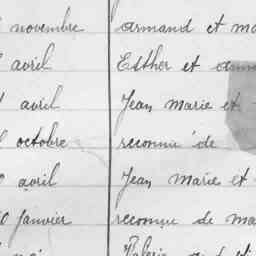 novembre armand et
avril Esther et
avril Jean marie et
octobre reconnu de
avril Jean marie et
janvier reconnue de